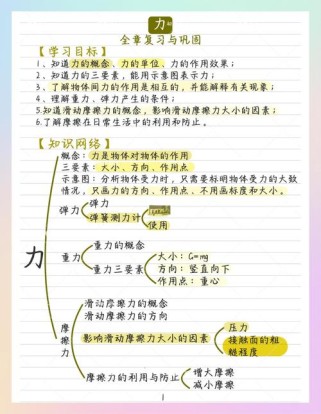 力
全章复习与巩固
【学习目标】
1、知道力的概念、力的单位、力的作用效果；
2、知道力的三要素，能用示意图表示力；
3、了解物体间力的作用是相互的，并能解释有关现象；
4、理解重力、弹力产生的条件；
5.知道滑动摩擦力的概念，影响滑动摩擦力大小的因素；
6.了解摩擦在日常生活中的利用和防止。
【知识网络】
力
概念：力是物体对物体的作用
三要素：大小、方向、作用点
示意图：分析物体受力时，只需要标明物体受力的大致
情况，只画力的方向、作用点、不用画标度和大小。
弹力
弹力
弹簧测力计
使用
重力
重力的概念
重力三要素
大小：G=mg
方向：竖直向下
作用点：重心
摩擦力
滑动摩擦力的概念
滑动摩擦力的方向
影响滑动摩擦力大小的因素
压力
接触面的粗
糙程度
摩擦力的利用与防止
增大摩擦
减小摩擦
1